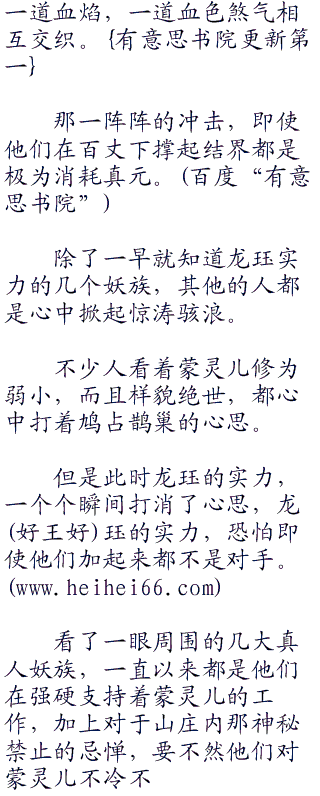 一道血焰，一道血色煞气相
互交织。{有意思书院更新第
一}
那一阵阵的冲击，即使
他们在百丈下撑起结界都是
极为消耗真元。(百度“有意
思书院”)
除了一早就知道龙珏实
力的几个妖族，其他的人都
是心中掀起惊涛骇浪。
不少人看着蒙灵儿修为
弱小，而且样貌绝世，都心
中打着鸠占鹊巢的心思。
但是此时龙珏的实力，
一个个瞬间打消了心思，龙
(好王好)珏的实力，恐怕即
使他们加起来都不是对手。
(www.heihei66.com)
看了一眼周围的几大真
人妖族，一直以来都是他们
在强硬支持着蒙灵儿的工
作，加上对于山庄内那神秘
禁止的忌惮，要不然他们对
蒙灵儿不冷不